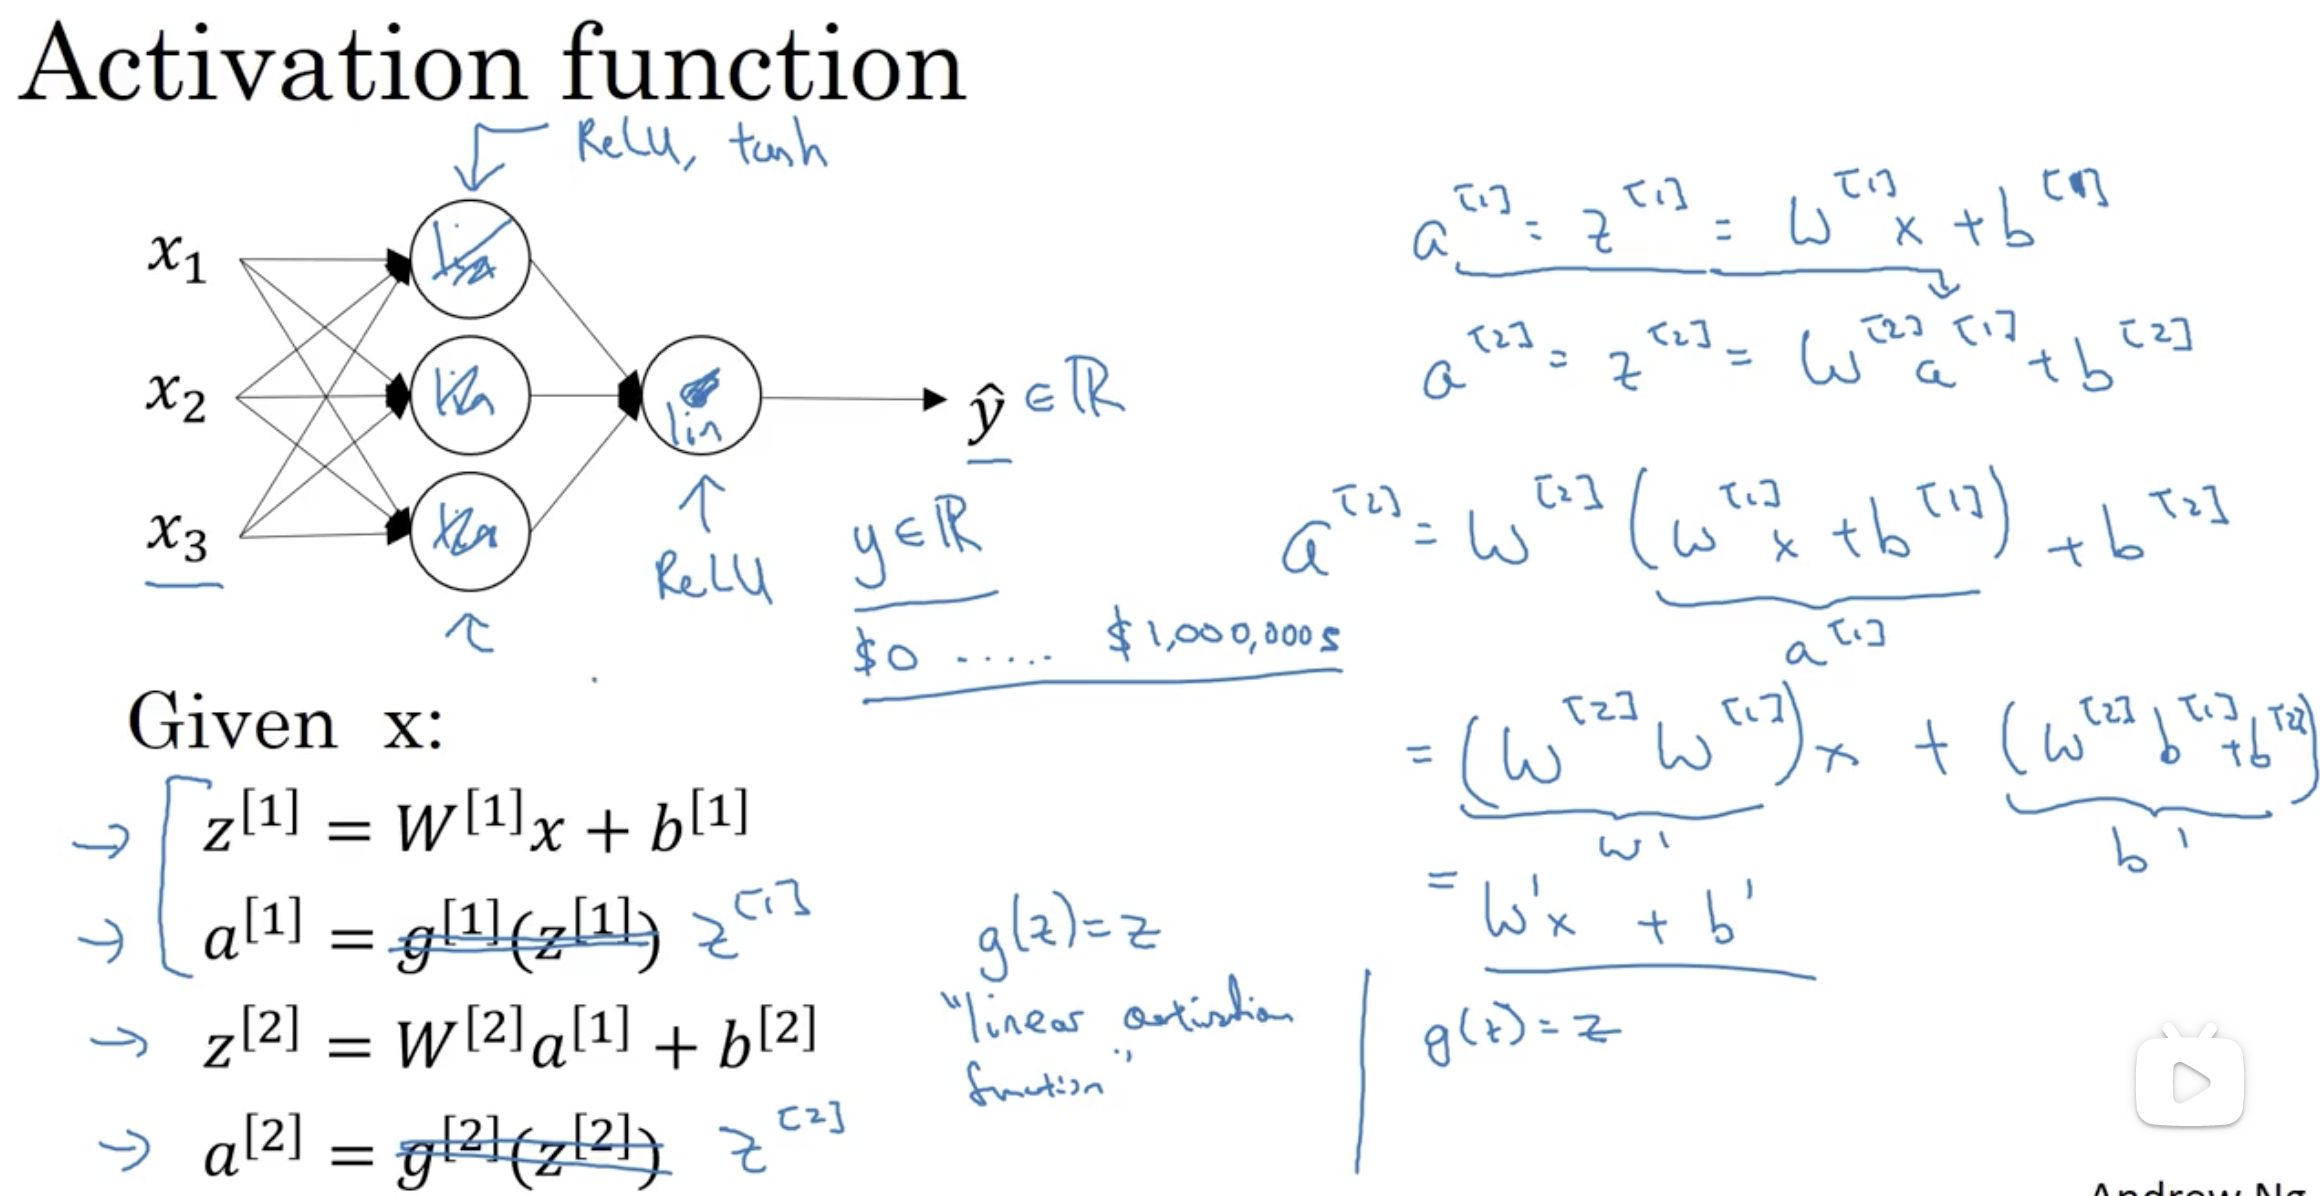 Activation function
ReLU, tanh
x₁
x₂
x₃
lin
ŷ ∈ ℝ
ReLU
y ∈ ℝ
$0 ..... $1,000,000s
Given x:
→ z^[1] = W^[1]x + b^[1]
→ a^[1] = g^[1](z^[1]) z^[1]
→ z^[2] = W^[2]a^[1] + b^[2]
→ a^[2] = g^[2](z^[2]) z^[2]
g(z) = z
"linear activation
function"
a^[1] = z^[1] = W^[1]x + b^[1]
a^[2] = z^[2] = W^[2]a^[1] + b^[2]
a^[2] = W^[2](W^[1]x + b^[1]) + b^[2]
a^[1]
= (W^[2]W^[1])x + (W^[2]b^[1] + b^[2])
W' b'
= W'x + b'
g(z) = z
Andrew Ng